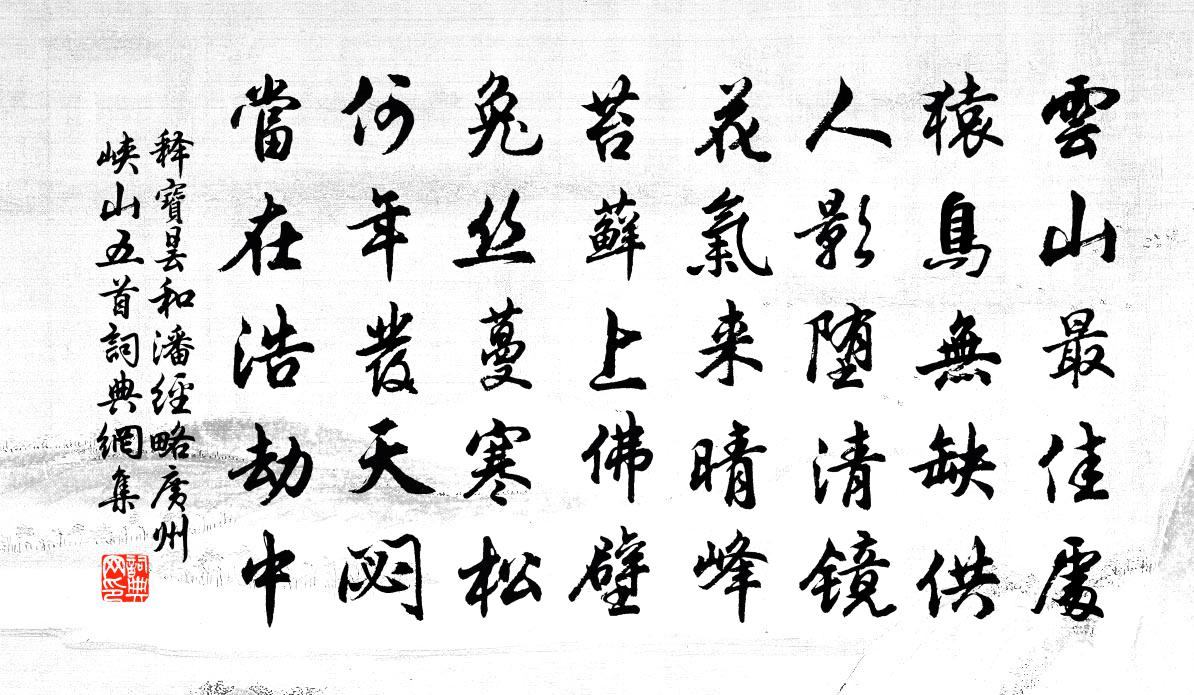 雲山最佳處
猿鳥無缺供
人影堕清鏡
花氣来晴峰
苔蘚上佛壁
兔丝蔓寒松
何年發天閟
當在浩劫中
释寶曇和潘經略廣州
峡山五首詞典網集
詞典
网印